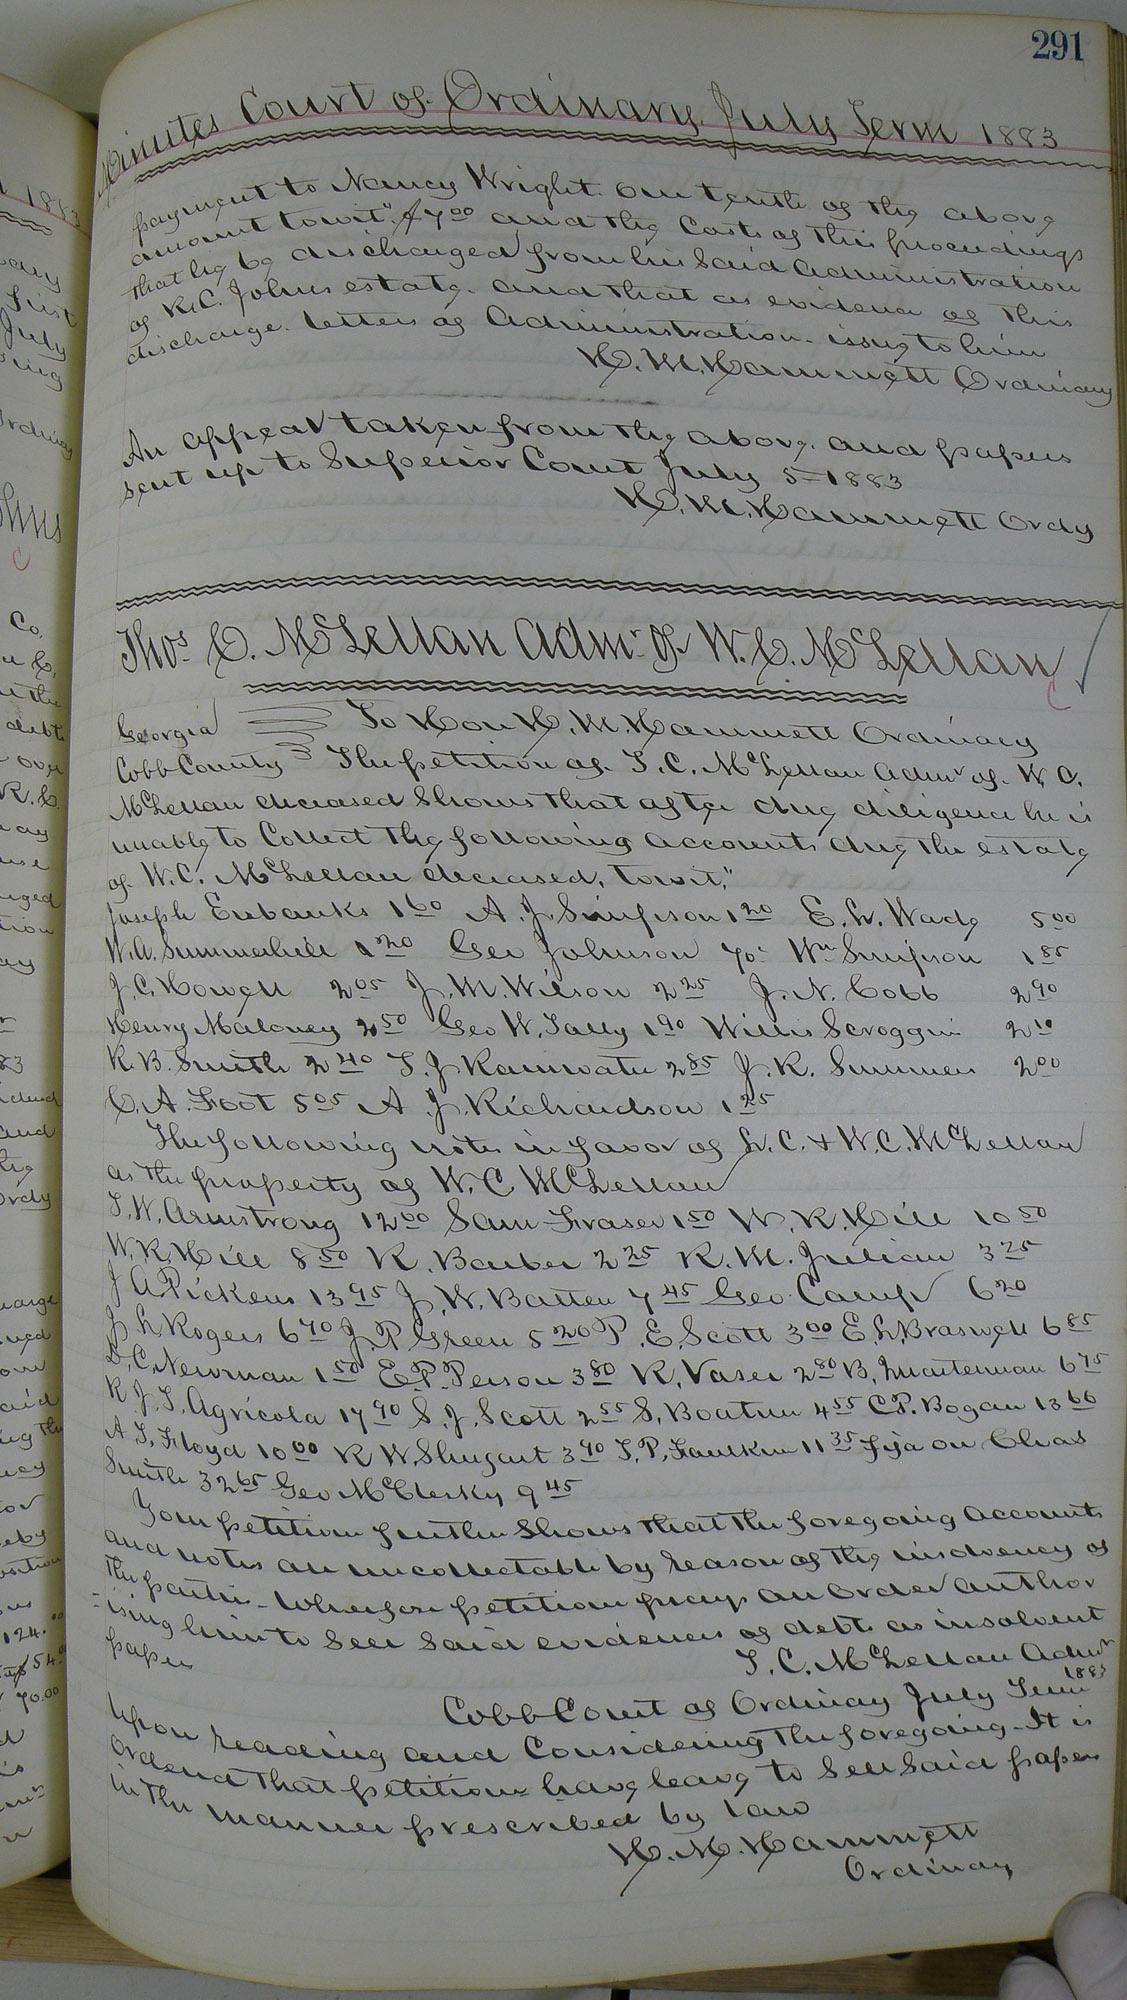 291
Minutes Court of Ordinary July Term 1883
payment to Nancy Wright one tenth of the above
amount towit" $7 00 and the Costs of this proceedings
that he be discharged from his Said administration
of R.C. Johns estate. and that as evidence of this
discharge. letters of Administration. issue to him
H. M. Hammett Ordinary
An appeal taken from the above. and papers
sent up to Superior Court July 5-1883
H. M. Hammett Ordy
Thos C. McLellan Admr of W. C. McLellan
Georgia To Hon H. M. Hammett Ordinary
Cobb County The petition of T. C. McLellan Admr of W. C.
McLellan deceased Shows that after due diligence he is
unable to Collect the following accounts due the estate
of W. C. McLellan deceased, towit,"
Joseph Eubanks 1 60 A. J. Simpson 1 20 E. W. Wade 5 00
W. A. Summerhill 1 20 Geo Johnson 70c Wm Simpson 1 85
J. C. Howell 2 05 J. M. Wilson 2 25 J. N. Cobb 2 90
Henry Maloney 2 50 Geo W. Tally 1 90 Willis Scroggin 2 10
R. B. Smith 2 40 T. J. Rainwater 2 85 J. R. Summers 2 00
C. A. Foot 5 05 A. J. Richardson 1 25
The following notes in favor of L. C. & W. C. McLellan
as the property of W. C. McLellan
T. W. Armstrong 12 00 Sam Fraser 1 50 W. R. Hill 10 50
W. R. Hill 8 50 R. Barber 2 25 R. M. Julian 3 25
J A Pickens 13 95 J. W. Batten 7 45 Geo Camp 6 20
J L Rogers 6 70 J. P. Green 5 20 P. E. Scott 3 00 E. L. Braswell 6 85
C. Newman 1 50 E. P. Person 3 80 R. Vaser 2 80 B. Quarterman 6 75
R. J. T. Agricola 17 90 S. J. Scott 2 55 S. Boatner 4 55 C. P. Bogan 13 66
A. T. Floyd 10 00 R W. Shugart 3 90 T. P. Faulkner 11 35 Fifa on Chas
Smith 32 65 Geo McClesky 9 45
Your petition further Shows that the foregoing accounts
and notes are uncollectable by reason of the insolvency of
the parties - Wherefore petitioner prays an Order author
=ising him to Sell Said evidences of debt as insolvent
papers
T. C. McLellan Admr
Cobb Court of Ordinary July Term 1883
Upon reading and Considering the foregoing - It is
Ordered that petitioner have leave to Sell Said papers
in the manner prescribed by law
H. M. Hammett
Ordinary